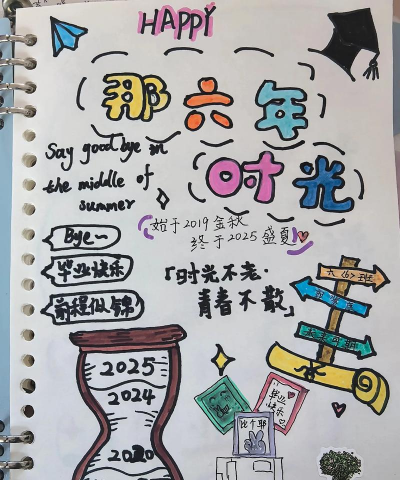 HAPPY
那六年
时光
Say good bye in
the middle of
summer
始于2019金秋
终于2025盛夏
Bye~
毕业快乐
前程似锦
「时光不老·
青春不散」
六(6)班
未来可期
2025
2024
2020
毕业
快乐
比个耶